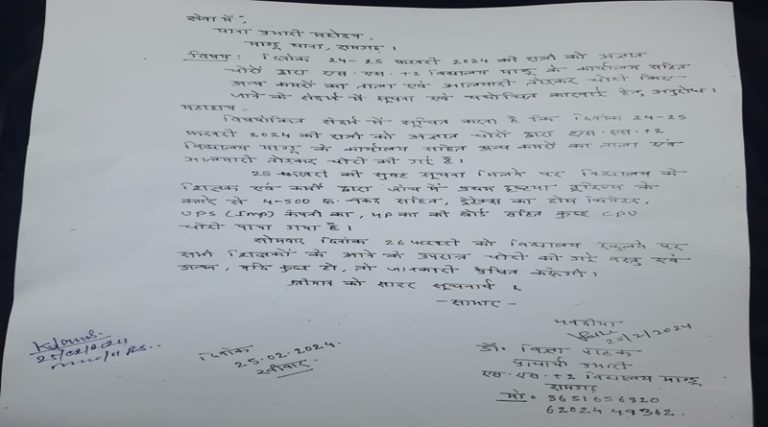 सेवा में,
थाना प्रभारी महोदय,
माण्डू थाना, रामगढ़।
विषय: दिनांक 24-25 फरवरी 2024 की रात्री को अज्ञात
चोरों द्वारा एस·एस·+2 विद्यालय माण्डू के कार्यालय सहित
अन्य कमरों का ताला एवं आलमारी तोड़कर चोरी किए
जाने के संदर्भ में सूचना एवं यथोचित कारवाई हेतु अनुरोध।
महाशय,
विषयांकित संदर्भ में सूचित करना है कि दिनांक 24-25
फरवरी 2024 की रात्री को अज्ञात चोरों द्वारा एस·एस·+2
विद्यालय माण्डू के कार्यालय सहित अन्य कमरों का ताला एवं
आलमारी तोड़कर चोरी की गई है।
25 फरवरी की सुबह सूचना मिलने पर विद्यालय के
शिक्षक एवं कर्मी द्वारा जांच में प्रथम दृष्टया टूरिज्म के
कमरे से 4-500 रु. नकद सहित, का होम थियेटर,
UPS (Imp) कंपनी का, HP का की बोर्ड सहित कुछ CPU
चोरी पाया गया है।
सोमवार दिनांक 26 फरवरी को विद्यालय खुलने पर
सभी शिक्षकों के आने के उपरान्त चोरी की गई वस्तु एवं
अन्य, यदि कुछ हो, तो जानकारी प्रेषित करूँगी।
श्रीमान को सादर सूचनार्थ।
- साभार -
भवदीया
25/2/2024
डॉ. पाठक
प्राचार्या प्रभारी
एस·एस·+2 विद्यालय माण्डू
रामगढ़
मो. 8651656920
6202449362.
दिनांक
25.02.2024.
रवीवार
25/02/2024